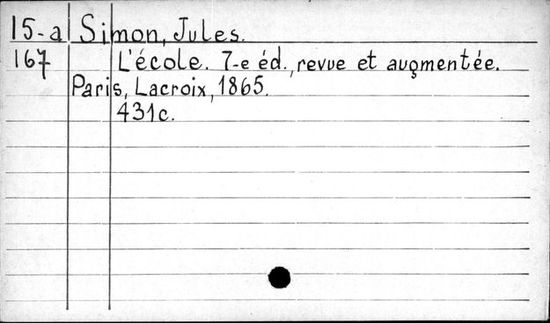 15-a Simon, Jules.
167 L'école. 7-e éd., revue et augmentée.
Paris, Lacroix, 1865.
431c.